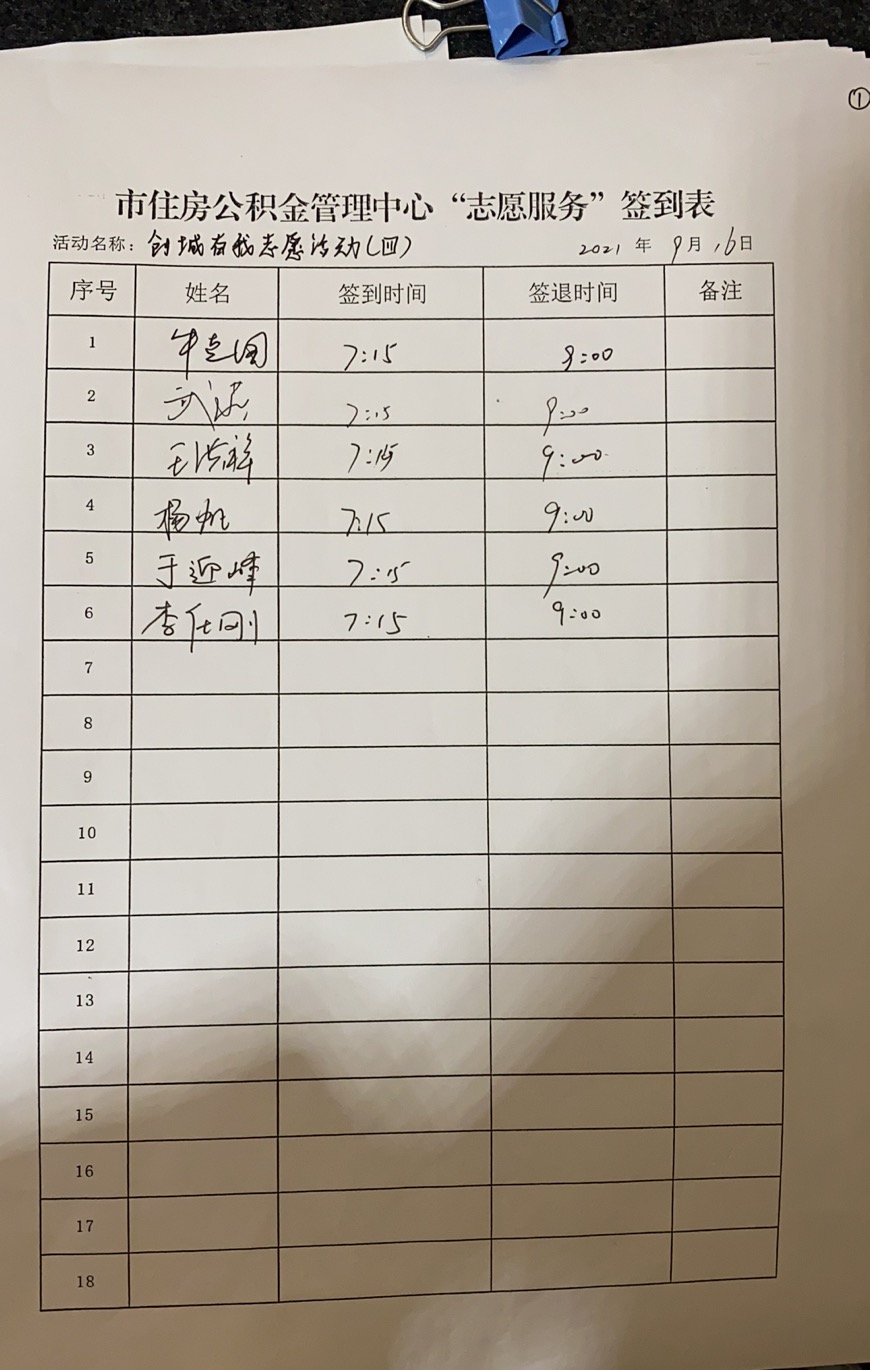 ①
市住房公积金管理中心“志愿服务”签到表
活动名称：创城有我志愿活动(四) 2021年9月16日
序号 姓名 签到时间 签退时间 备注
1 牛克国 7:15 9:00
2 7:15 9:00
3 王洪祥 7:15 9:00
4 杨帆 7:15 9:00
5 于迎峰 7:15 9:00
6 李仕刚 7:15 9:00
7
8
9
10
11
12
13
14
15
16
17
18